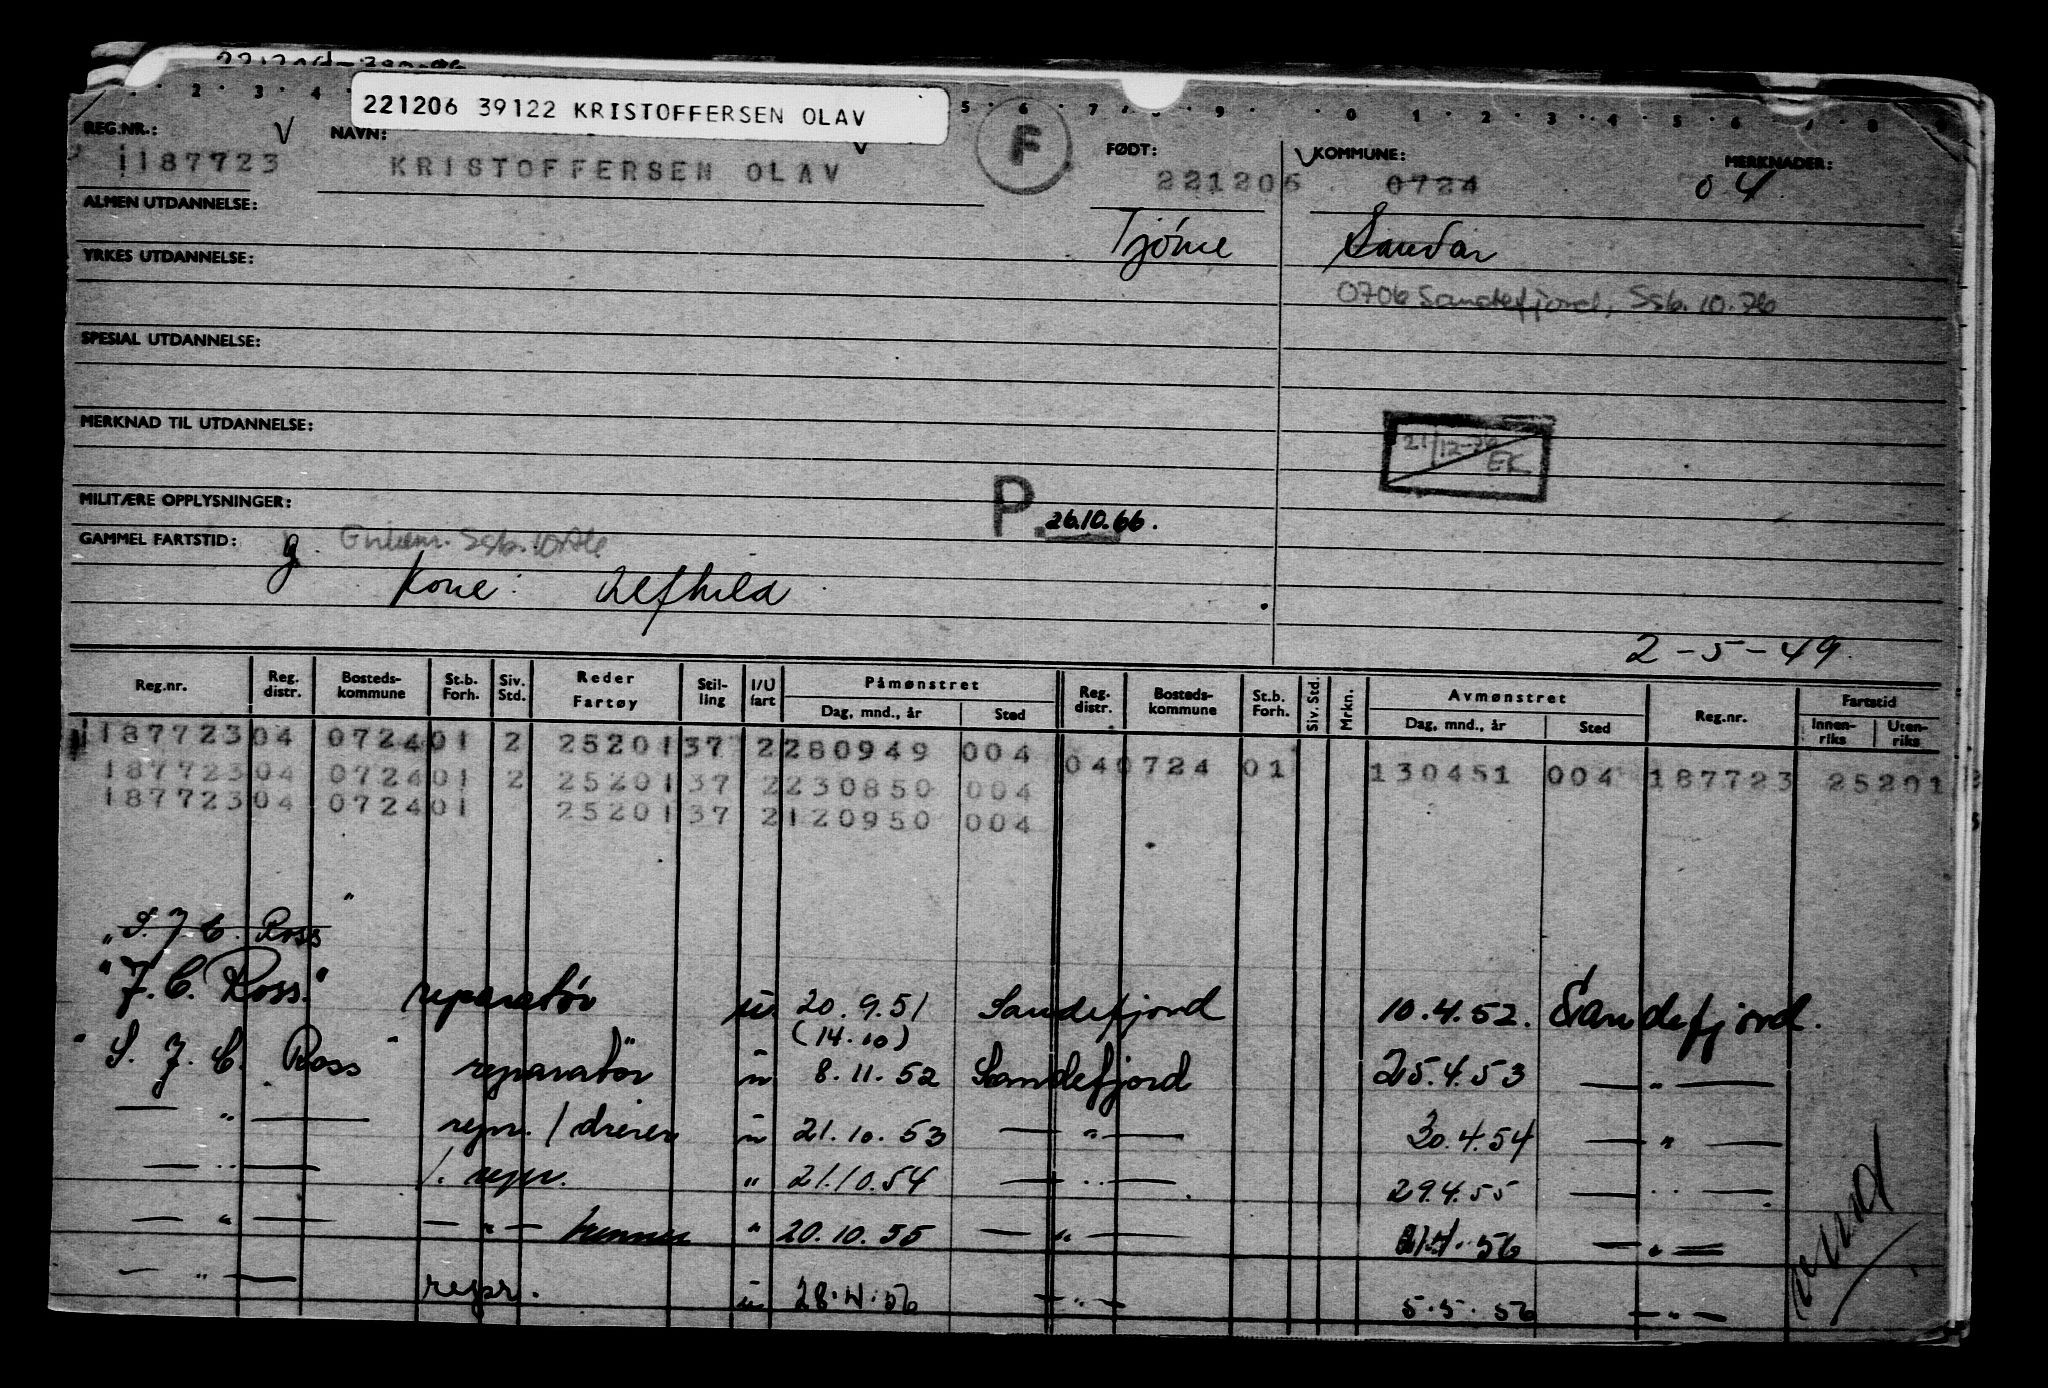 221206 39122 KRISTOFFERSEN OLAV
2 3 4 5 6 7 8 9 0 1 2 3 4 5 6 7 8
REG.NR.: V NAVN: V F FØDT: V KOMMUNE: MERKNADER:
187723 KRISTOFFERSEN OLAV 221206 0724 04
ALMEN UTDANNELSE: Tjöme Sandar
YRKES UTDANNELSE:
0706 Sandefjord, Ssb. 10.76
SPESIAL UTDANNELSE:
MERKNAD TIL UTDANNELSE:
21/12-76 EK
MILITÆRE OPPLYSNINGER: P. 26.10.66.
GAMMEL FARTSTID: g. Ssb. 10.76
Kone: Alfhild
2-5-49
Reg.nr. Reg. distr. Bosteds-kommune St.b. Forh. Siv. Std. Reder Fartøy Stil-ling I/U fart Påmønstret Dag, mnd., år Sted Reg. distr. Bosteds-kommune St.b. Forh. Siv. Std. Mrkn. Avmønstret Dag, mnd., år Sted Reg.nr. Fartstid Innen-riks Uten-riks
187723 04 0724 01 2 25201 37 2 280949 004 04 0724 01 130451 004 187723 25201
187723 04 0724 01 2 25201 37 2 230850 004
187723 04 0724 01 25201 37 2 120950 004
"S. J. C. Ross"
"J. C. Ross." reparatör u 20.9.51 Sandefjord 10.4.52. Sandefjord.
(14.10)
"S. J. C. Ross" reparatör u 8.11.52 Sandefjord 25.4.53 — " —
— " — repr. / dreier u 21.10.53 — " — 30.4.54 — " —
— " — 1. repr. " 21.10.54 — " — 29.4.55 — " —
— " — — " — " 20.10.55 — " — 56 — " —
— " — repr. u 56 — " — 5.5.56 — " —